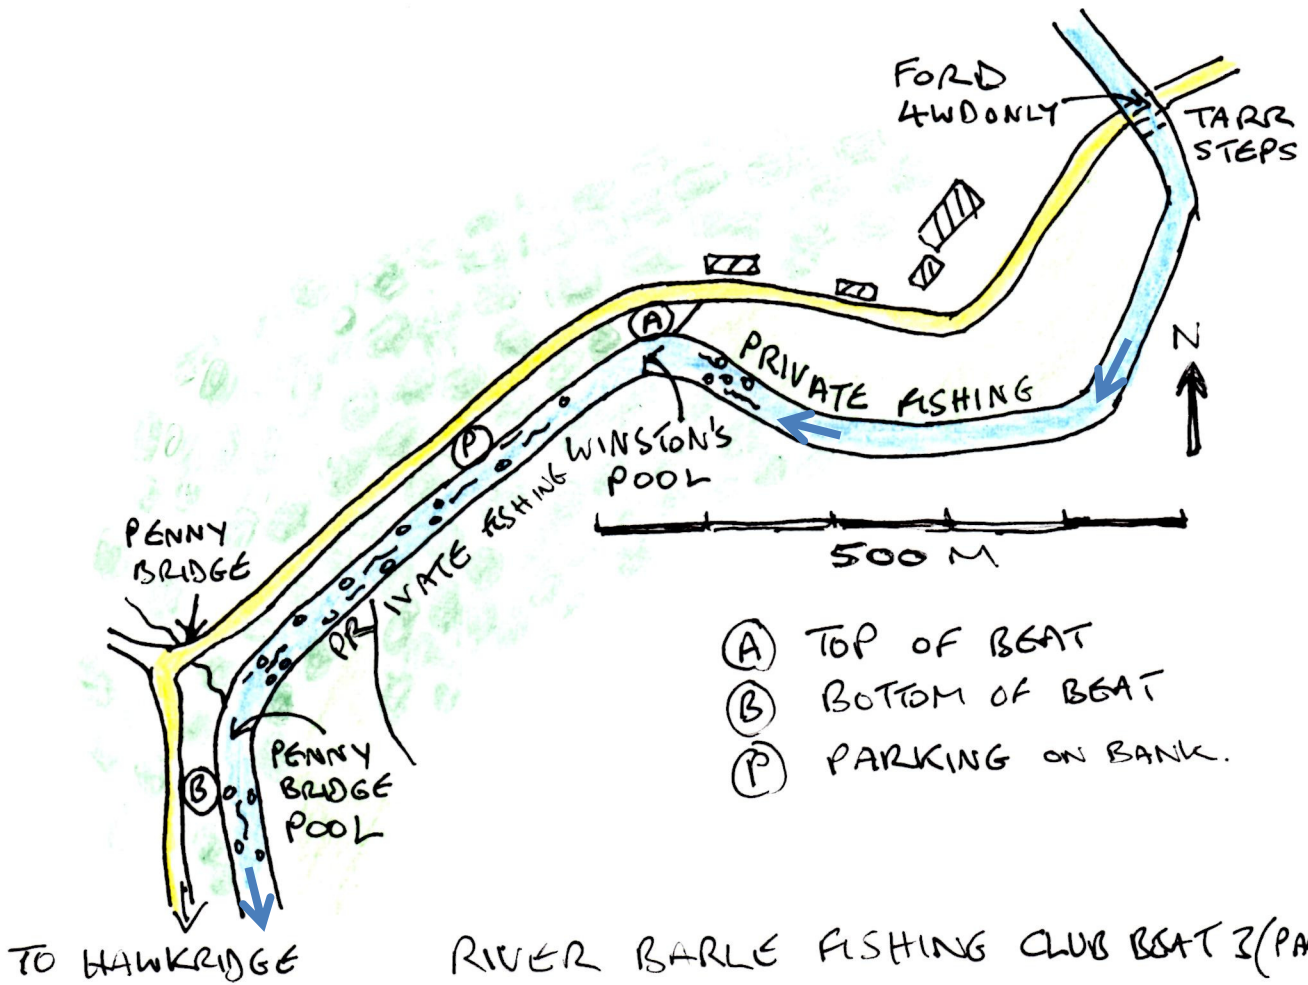 FORD
4WD ONLY
TARR
STEPS
N
A
PRIVATE FISHING
P
WINSTON'S
POOL
PRIVATE FISHING
500 M
PENNY
BRIDGE
A TOP OF BEAT
B BOTTOM OF BEAT
P PARKING ON BANK.
PENNY
BRIDGE
POOL
B
TO HAWKRIDGE
RIVER BARLE FISHING CLUB BEAT 3 (PA